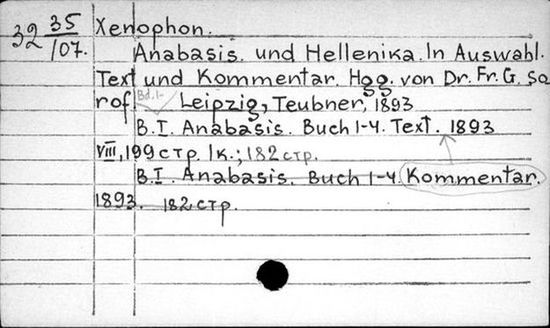 32 35/107. Xenophon.
Anabasis. und Hellenika. In Auswahl.
Text und Kommentar. Hgg. von Dr. Fr. G. So
rof. Bd. 1- Leipzig, Teubner, 1893
B. I. Anabasis. Buch 1-4. Text. 1893
VIII, 199 стр. 1к.; 182 стр.
B. I. Anabasis. Buch 1-4. Kommentar.
1893. 182 стр.